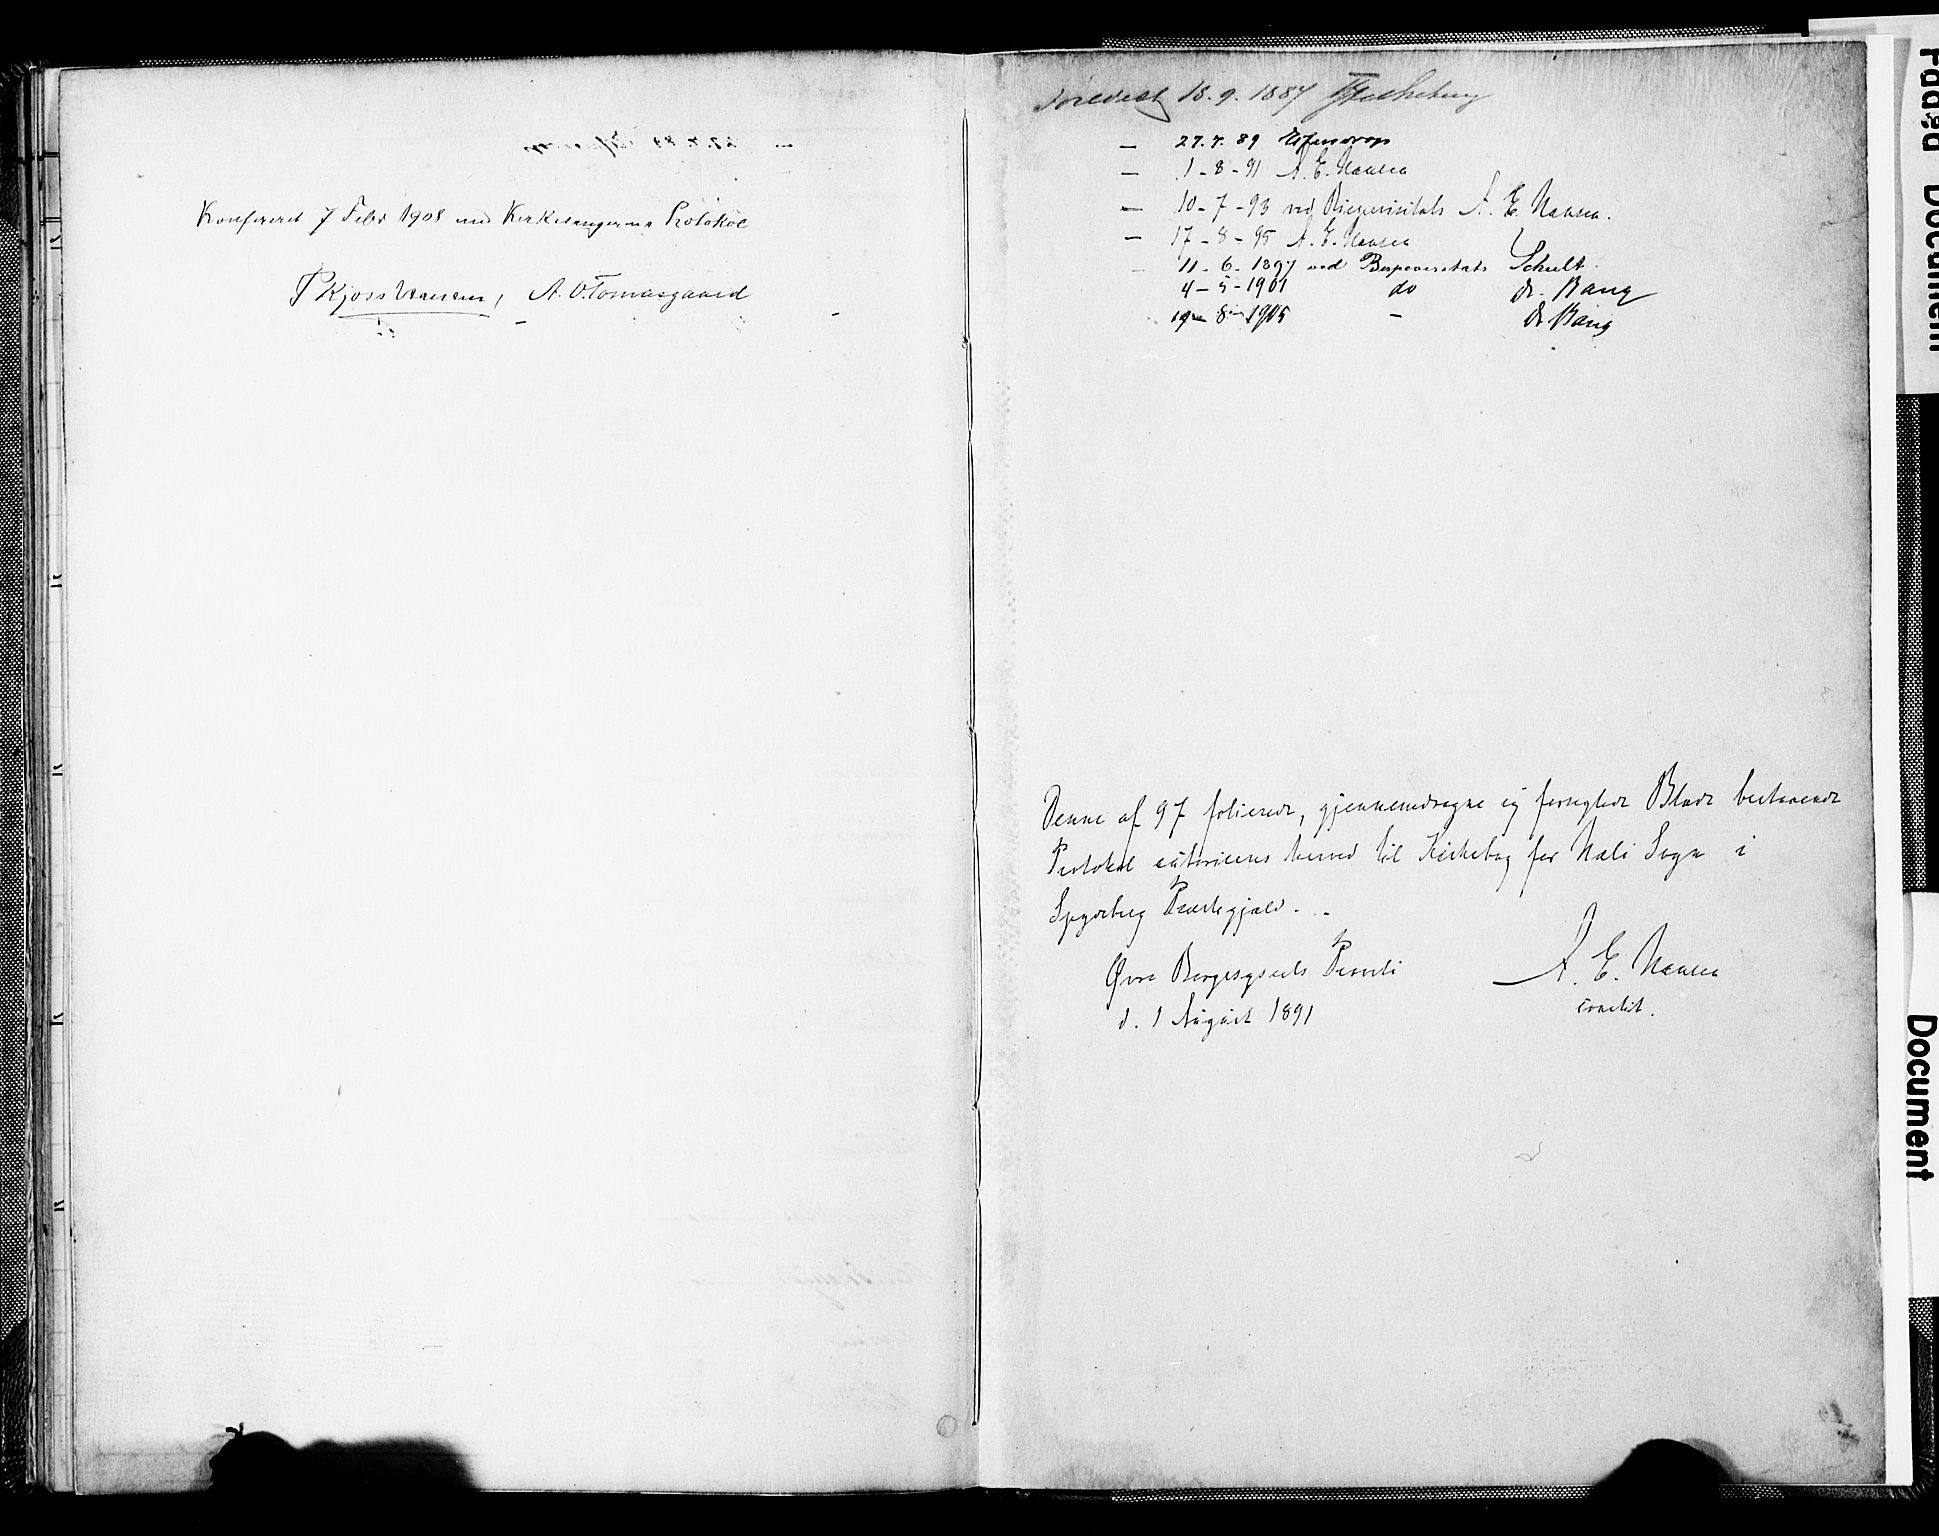 Konfereret 7 Febr 1908 med Kirkesangerens Protokol
P Kjoss Hansen, A. O. Tomasgaard
Forevist 13.9.1887
— 27.7.89
— 1-8-91 A. E. Hansen
— 10-7-93 ved Bispevisitats A. E. Hansen.
— 17-8-95 A. E. Hansen
11-6-1897 ved Bispevisitats
4-5-1901 do Dr. Bang
19-8-1905 — Dr Bang
Denne af 97 folierede, gjennemdragne og forseglede Blade bestaaende
Protokol autoriseres herved til Kirkebog for Heli Sogn i
Spydeberg Præstegjæld.
Øvre Borgesyssels Provsti
d. 1 August 1891
A. E. Hansen
const.
Document
Document